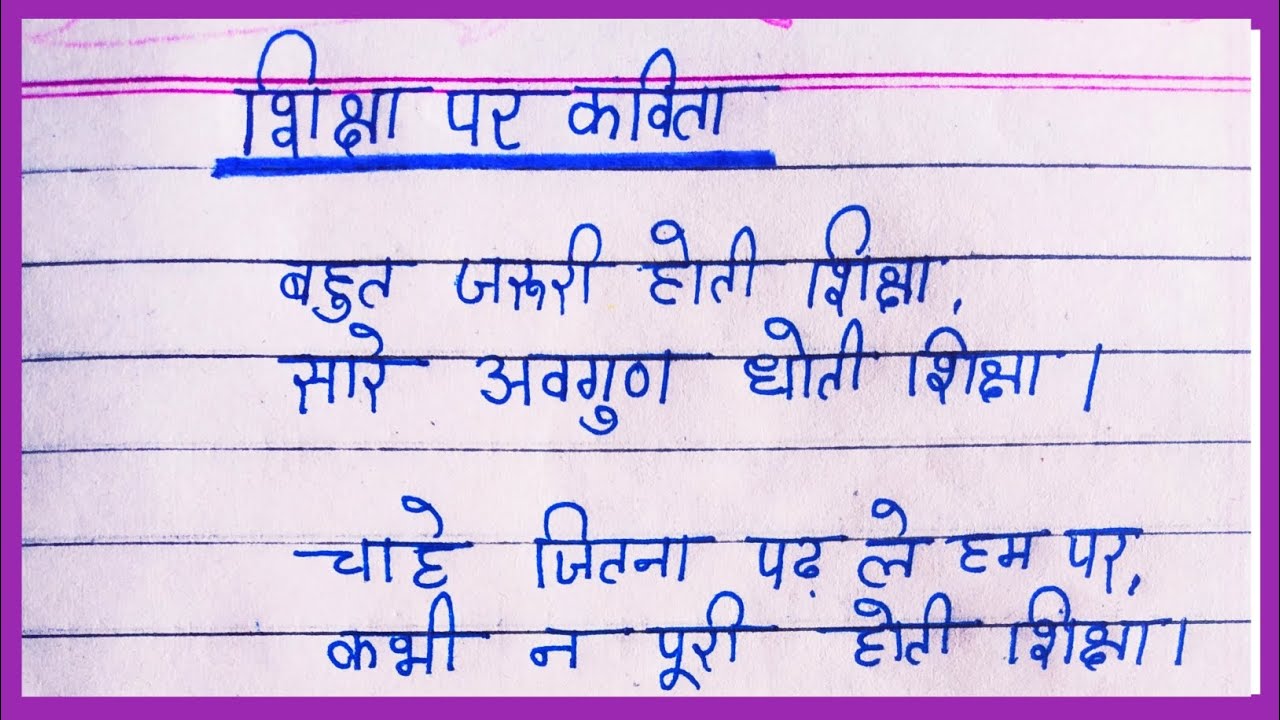 शिक्षा पर कविता
बहुत जरूरी होती शिक्षा,
सारे अवगुण धोती शिक्षा।
चाहे जितना पढ़ ले हम पर,
कभी न पूरी होती शिक्षा।